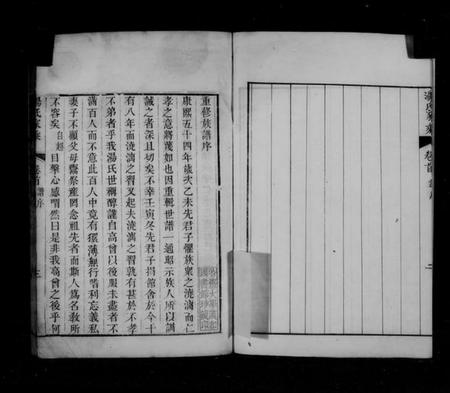 湯氏家乘 卷首 譜序 一
重修族譜序
康熙五十四年歲次乙未先君子懼族衆之澆漓而仁
孝之意將蔑如也因重輯世譜一通昭示族人所以訓
誡之者深且切矣不幸壬寅冬先君子捐館舍於今十
有八年而澆漓之習又起夫澆漓之習孰有甚於不孝
不弟者乎我湯氏世稱醇謹自高曾以後服未盡者不
滿百人而不意此百人中竟有獧薄無行嗜利忘義私
妻子不顧父母鬻祭產罔念祖先者而斯人爲名敎所
不容矣自超目擊心感喟然曰是非我高曾之後乎何
湯氏家乘 卷首 譜序 二